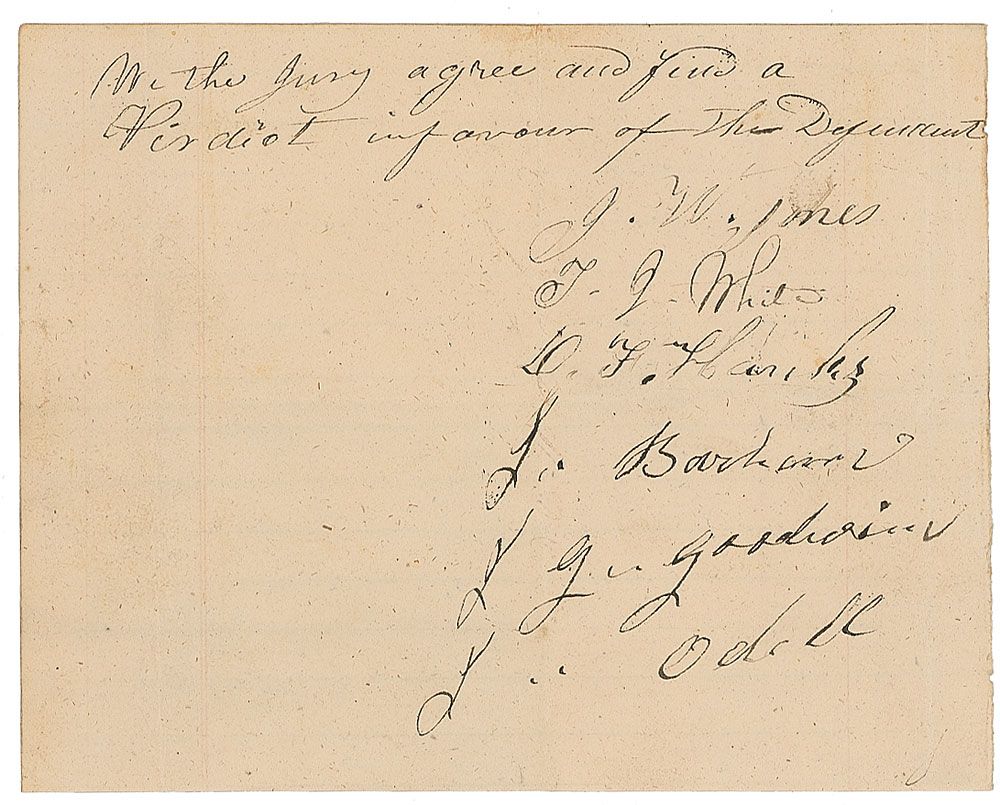 We the Jury agree and find a
Virdict infavour of the Defendant
J. W. Jones
T. J. White
D. F. Hanks
J. Barham
J G. Goodwin
J. Odell